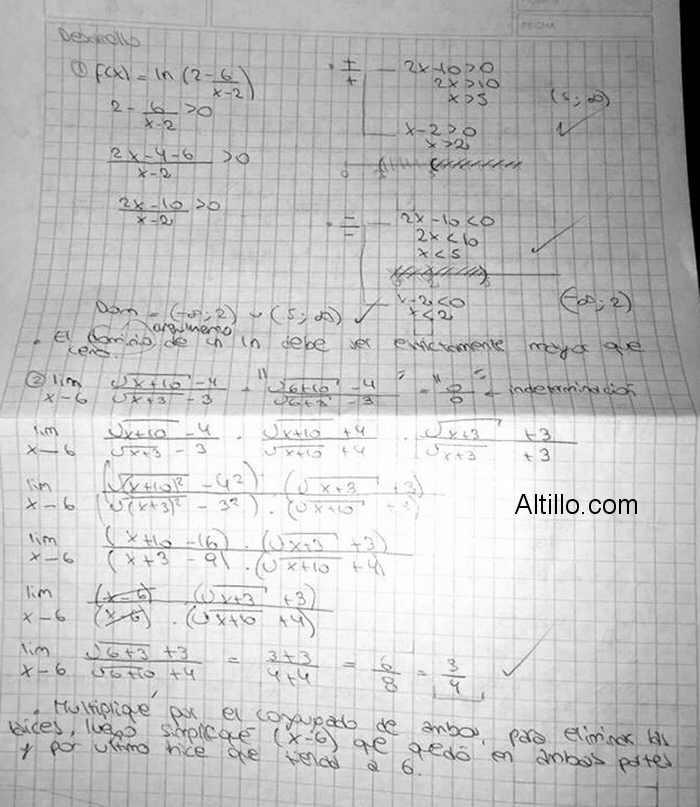 FECHA
Desarrollo
① f(x) = ln (2 - 6/(x-2))
2 - 6/(x-2) > 0
(2x-4-6)/(x-2) > 0
(2x-10)/(x-2) > 0
• +/+ — 2x-10>0
2x>10
x>5
(5;∞)
x-2>0
x>2
• -/- — 2x-10<0
2x<10
x<5
x-2<0
x<2
(-∞;2)
Dom = (-∞;2) ∪ (5;∞)
argumento
• El dominio de un ln debe ser estrictamente mayor que
cero.
② lim x→6 (√(x+10) - 4)/(√(x+3) - 3) = "(√(6+10) - 4)/(√(6+3) - 3)" = "0/0" → indeterminación
lim x→6 (√(x+10) - 4)/(√(x+3) - 3) · (√(x+10) + 4)/(√(x+10) + 4) · (√(x+3) + 3)/(√(x+3) + 3)
lim x→6 (√(x+10)² - 4²) · (√(x+3) + 3) / (√(x+3)² - 3²) · (√(x+10) + 4)
Altillo.com
lim x→6 (x+10 - 16) · (√(x+3) + 3) / (x+3 - 9) · (√(x+10) + 4)
lim x→6 (x-6) (√(x+3) + 3) / (x-6) · (√(x+10) + 4)
lim x→6 (√(6+3) + 3)/(√(6+10) + 4) = (3+3)/(4+4) = 6/8 = 3/4
• Multipliqué por el conjugado de ambos, para eliminar las
raíces, luego simplifiqué (x-6) que quedó en ambas partes
y por ultimo hice que tienda a 6.